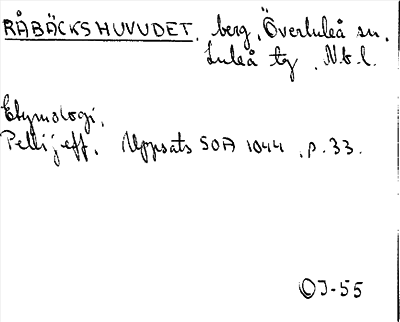 RÅBÄCKSHUVUDET. berg, Överluleå sn.
Luleå tg. N.b.l.
Etymologi.
Pellijeff, Uppsats SOA 1044, p. 33.
OJ-55